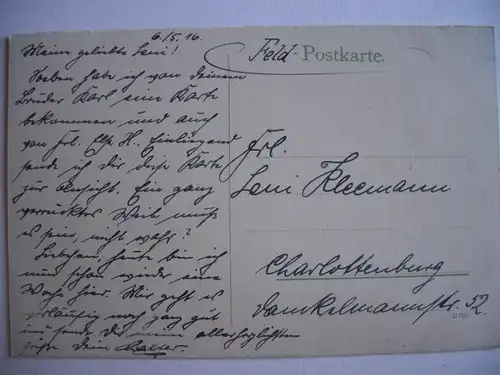 6./5. 16.
Meine geliebte Leni!
Soeben habe ich von deinem
Bruder Karl eine Karte
bekommen und auch
von Frl. Else H. Einliegend
sende ich dir diese Karte
zur Ansicht. Ein ganz
verrücktes Weib muß
es sein, nicht wahr?
Liebchen, heute bin ich
nun schon wieder eine
Woche hier. Mir geht es
vorläufig noch ganz gut
und sende Dir meine allerherzlichsten
Grüße Dein Walter.
Feld-Postkarte.
Frl.
Leni Kleemann
Charlottenburg
Danckelmannstr. 52